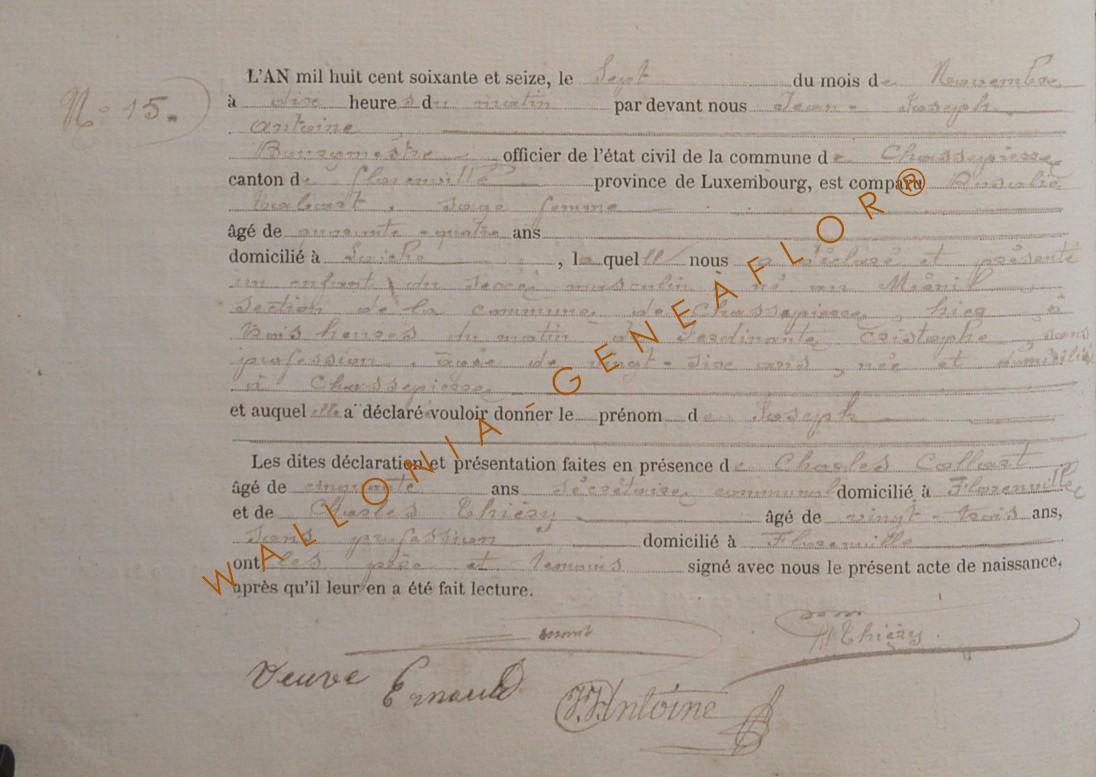 N° 15.
L'AN mil huit cent soixante et seize, le Sept du mois de Novembre
à dix heures du matin par devant nous Jean-Joseph
Antoine
Bourgmestre officier de l'état civil de la commune de Chassepierre
canton de Florenville province de Luxembourg, est comparu Rosalie
sage femme
âgé de quarante-quatre ans
domicilié à , laquelle nous a déclaré et présenté
un enfant du sexe masculin né au Ménil
section de la commune de Chassepierre, hier à
trois heures du matin de Ferdinante, Cristophe, sans
profession, âgée de vingt-six ans, née et domiciliée
à Chassepierre
et auquel elle a déclaré vouloir donner le prénom de Joseph
Les dites déclaration et présentation faites en présence de Charles Collart
âgé de cinquante ans Sécrétaire communal domicilié à Florenville
et de Charles Thiéry âgé de vingt-trois ans,
Sans profession domicilié à Florenville
ont les père et témoins signé avec nous le présent acte de naissance,
après qu'il leur en a été fait lecture.
Thiéry.
Veuve Ernould
J.J. Antoine
WALLONIA-GENEAFLOR®